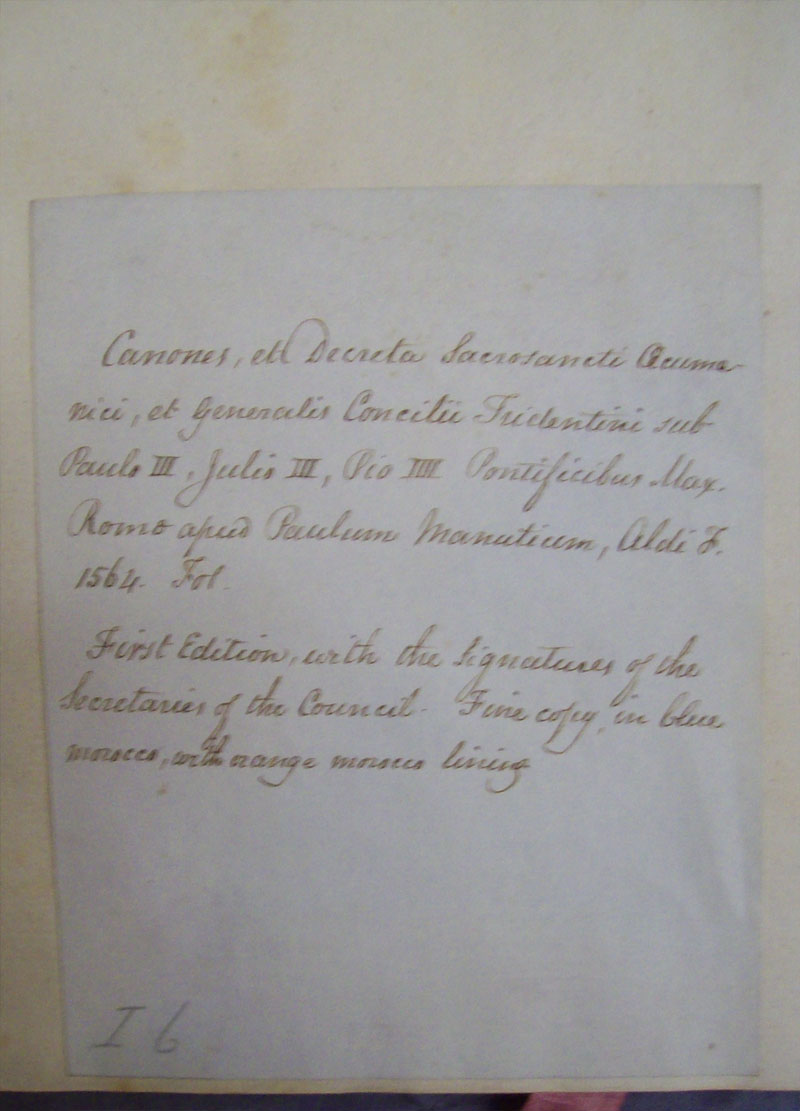 Canones, et Decreta Sacrosancti Œcume-
nici, et Generalis Concilii Tridentini sub
Paulo III, Julio III, Pio IIII Pontificibus Max.
Romæ apud Paulum Manutium, Aldi F.
1564. Fol.
First Edition, with the signatures of the
Secretaries of the Council. Fine copy, in blue
morocco, with orange morocco lining
I 6